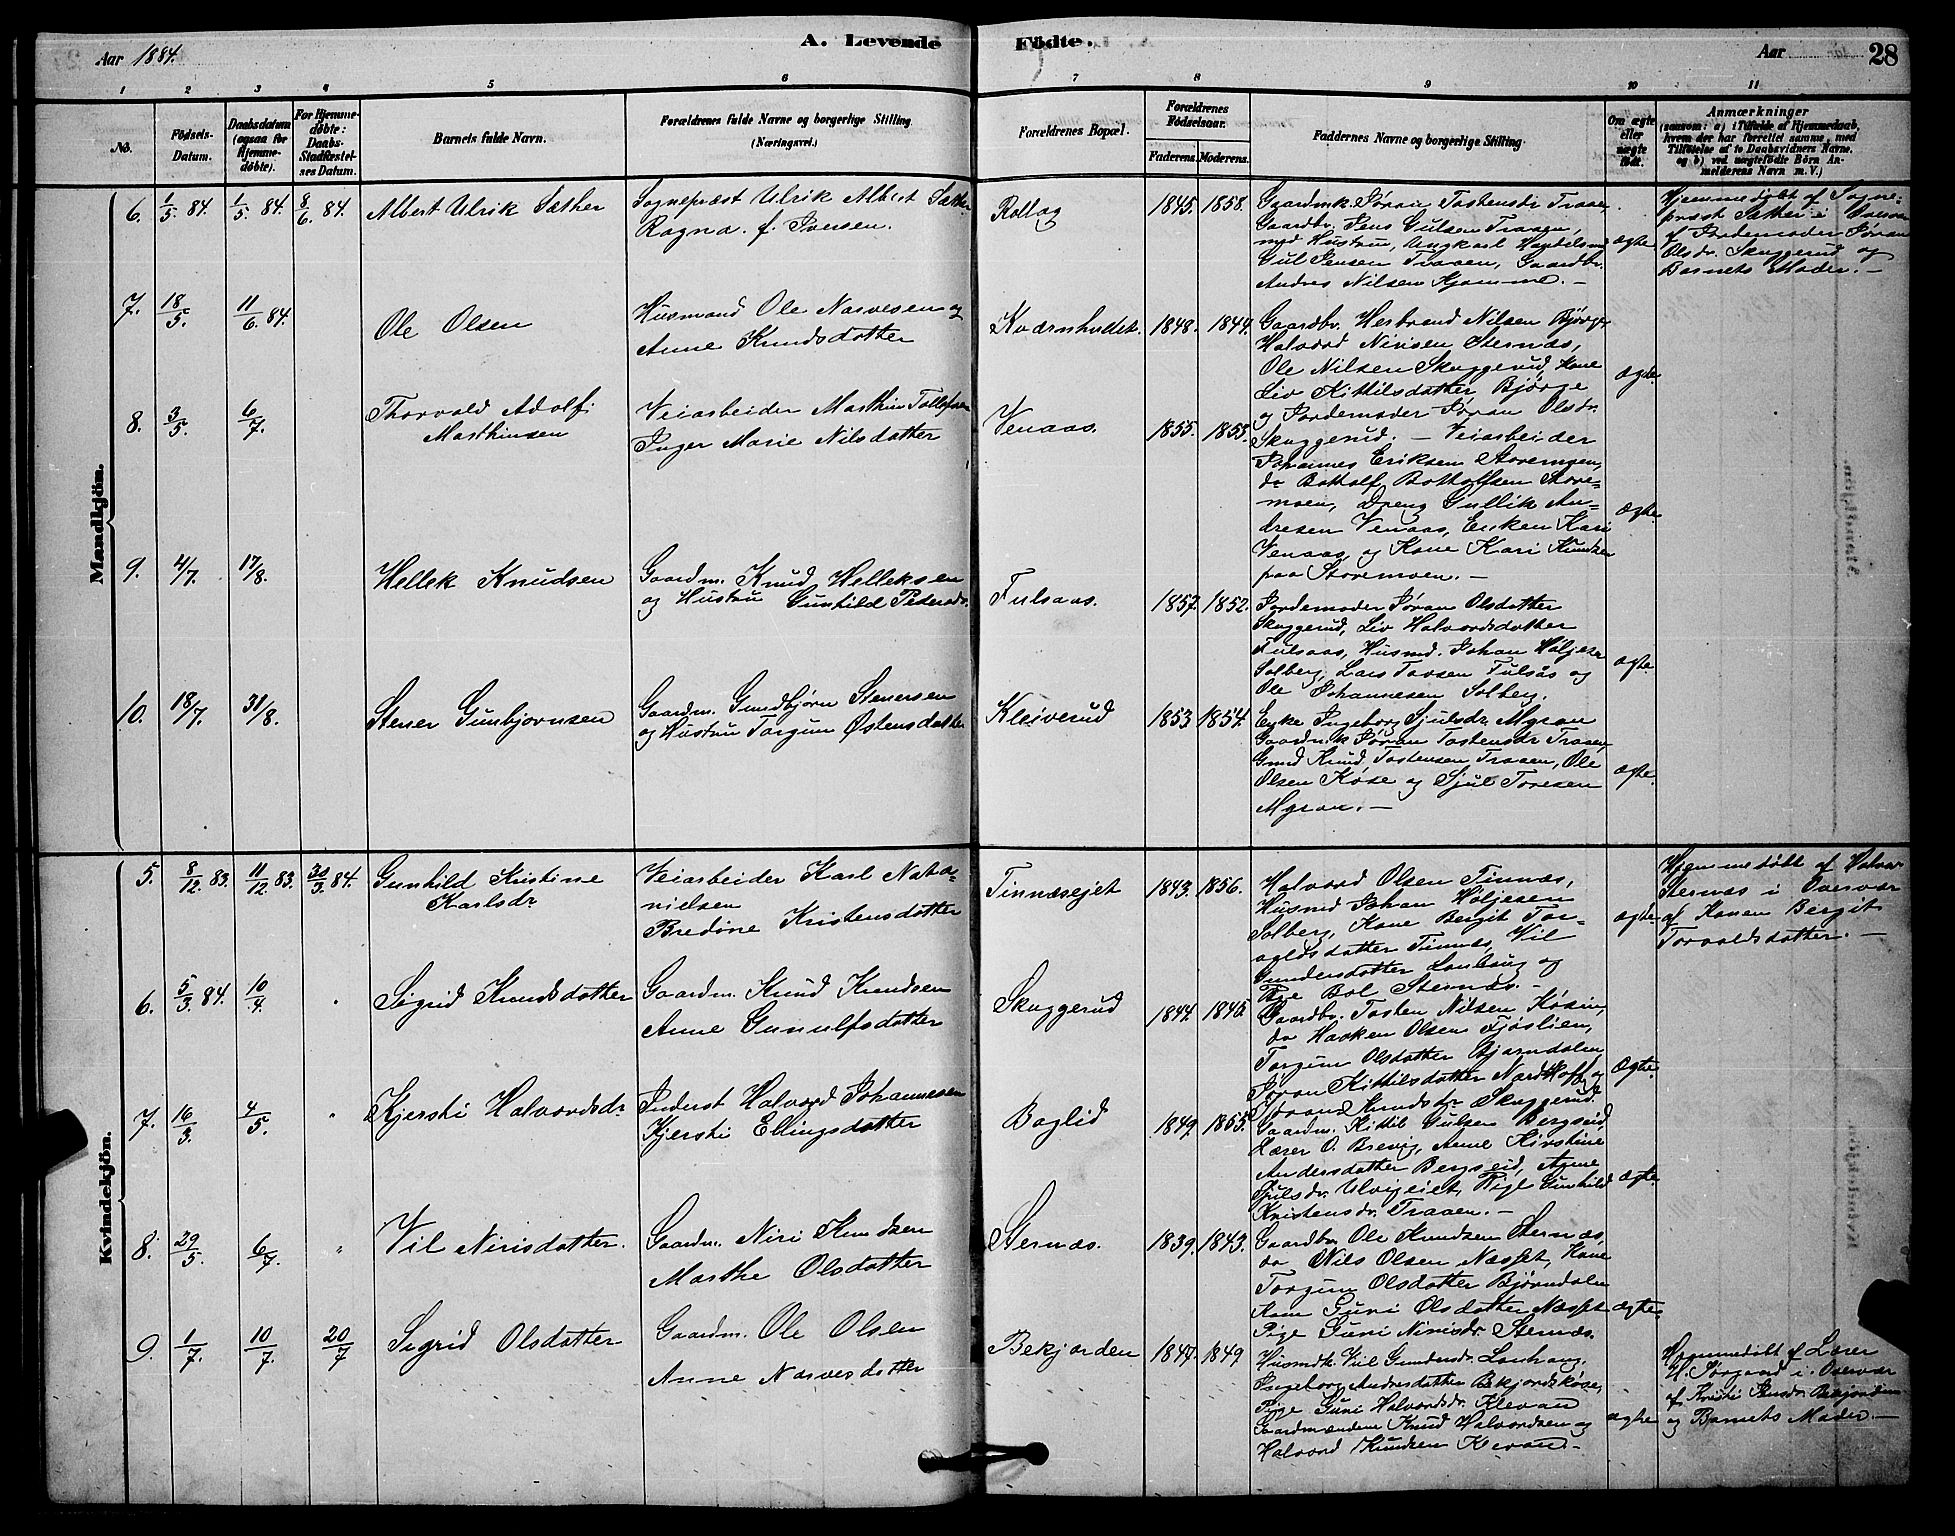 Aar 1884.
A. Levende
Födte.
Aar
28
1 2 3 4 5 6 7 8 9 10 11
No.
Födsels-
Datum.
Daabsdatum
(ogsaa for
Hjemme-
döbte).
For Hjemme-
döbte:
Daabs-
Stadfæstel-
ses Datum.
Barnets fulde Navn.
Forældrenes fulde Navne og borgerlige Stilling
(Næringsvei.)
Forældrenes Bopæl.
Forældrenes
Födselsaar.
Faderens.
Moderens.
Faddernes Navne og borgerlige Stilling.
Om ægte
eller
uægte
födt.
Anmærkninger
(saasom: a) i Tilfælde af Hjemmedaab,
hvem der har forrettet samme, med
Tilföielse af to Daabsvidners Navne,
og b) ved uægtefödte Börn An-
melderens Navn m. V.)
Mandkjön.
6. 1/5 84. 1/5 84. 8/6 84.
Albert Ulrik Sæther
Sognepræst Ulrik Albert Sæther
Ragna f. Iversen.
Rollag
1845. 1858.
Gaardmk. Jøran Tostensdr Traaen,
Gaardbr. Jens Gulsen Traaen,
med Hustru, Ungkarl Handelsmd
Gul Jensen Traaen, Gaardbr.
Andres Nilsen Hjamme. —
ægte
Hjemmedøbt af Sogne-
præst Sæther i Overvær
af Jordemoder Jøran
Olsdr. Skuggerud og
Barnets Moder. —
7. 18/5. 11/6 84.
Ole Olsen
Husmand Ole Narvesen og
Anne Knudsdatter
Kværnhvdet.
1848. 1844.
Gaardbr. Herbrand Nilsen Bjørge
Halvord Nirisen Sternæs,
Ole Nilsen Skuggerud, Kone
Liv Kittilsdatter Bjørge
og Jordemoder Jøran Olsdr.
Skuggerud. —
ægte
8. 3/5. 6/7.
Thorvald Adolf
Marthinsen
Veiarbeider Marthin Tollefsen
Inger Marie Nilsdatter
Venaas.
1855. 1855.
Veiarbeider
Johannes Eriksen Storemoen,
do Bottolf Bottolfsen Store-
moen, Dreng Gullik An-
dresen Venaas, Enken Kari
Venaas, og Kone Kari Knudsen
paa Storemoen. —
ægte
9. 4/7. 17/8.
Hellek Knudsen
Gaardm. Knud Helleksen
og Hustru Gunhild Pedersdr.
Fulsaas.
1857. 1852.
Jordemoder Jøran Olsdatter
Skuggerud, Liv Halvordsdatter
Fulsaas, Husmd. Johan Høljesen
Solberg, Lars Larsen Fulsås og
Ole Johannesen Solberg.
ægte
10. 18/7. 31/8.
Stener Gunbjørnsen
Gaardm. Gundbjørn Stenersen
og Hustru Torgun Østensdatter
Kleiverud
1853 1854.
Enke Ingeborg Sjulsdr. Myran
Gaardmk Jøran Tostensdr Traaen,
Gmd Knud Tostensen Traaen, Ole
Olsen Kose og Sjul Toresen
Myran. —
ægte.
Kvindekjön.
5. 8/12 83. 11/12 83. 30/3 84.
Gunhild Kristine
Karlsdr
Veiarbeider Karl Nata-
nielsen
Bredine Kristensdatter
Tinnæsejet
1843. 1856.
Halvord Olsen Tinnæs,
Husmd Johan Høljesen
Solberg, Kone Bergit Tor-
valdsdatter Tinnæs, Vil
Gundersdatter Lonhaug og
Bol Sternæs. —
ægte
Hjemmedøbt af Halvor
Sternæs i Overvær
af Konen Bergit
Torvaldsdatter. —
6. 5/3 84. 10/4. "
Sigrid Knudsdatter
Gaardm. Knud Knudsen
Anne Gunulfsdatter
Skuggerud
1844. 1845.
Gaardbr. Tosten Nilsen Kosin,
do Haaken Olsen Fjøslien,
Torgun Olsdatter Bjørndalen,
Jøran Kittilsdatter Nordhoff og
Jøran Knudsdr. Skuggerud.
ægte.
7. 16/3. 4/5. "
Kjersti Halvordsdr.
Inderst Halvord Johannesen
Kjersti Ellingsdatter
Baglid
1849. 1855.
Gaardm. Kittil Gulsen Bergseid,
Lærer O. Brevig, Anne Kirstine
Andersdatter Bergseid, Anne
Sjulsdr. Ulvigeiet, Pige Gunhild
Kristensdr. Traaen. —
ægte.
8. 29/5. 6/7. "
Vil Nirisdatter.
Gaardm. Niri Knudsen
Marthe Olsdatter
Sternæs.
1839. 1843.
Gaardbr. Ole Knudsen Sternæs,
do Nils Olsen Næsset, Kone
Torgun Olsdatter Bjørndalen
Kone Guri Olsdatter Næsset
Pige Guri Nirisdr. Sternæs.
ægte
9. 1/7. 10/7. 20/7
Sigrid Olsdatter
Gaardm. Ole Olsen
Anne Narvesdatter
Bekjorden
1847. 1849
Husmdk. Vil Gundersdr. Lonhaug.
Ingeborg Andresdatter Bekjordskøse,
Pige Guri Halvordsdr. Klevan
Gaardmændene Knud Halvordsen og
Halvord Knudsen Klevan. —
ægte
Hjemmedøbt af Lærer
H. Jørgaard i Overvær
af Kristi Jensdr. Bekjorden
og Barnets Moder. —